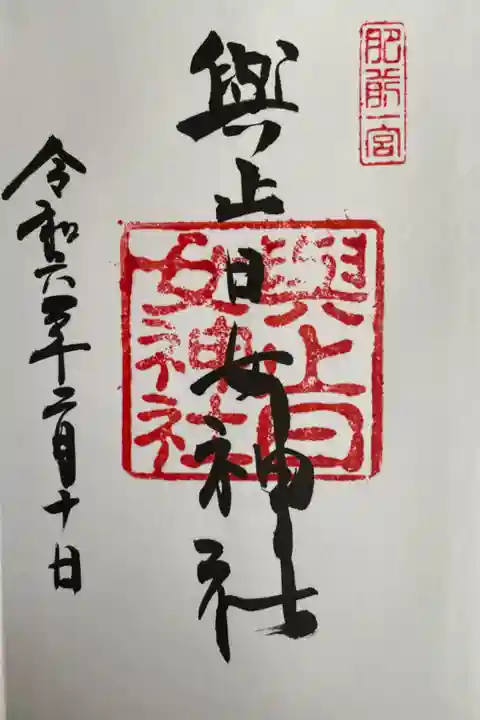 肥前一宮
與止日女神社
與止日
女神社
令和六年十二月十日